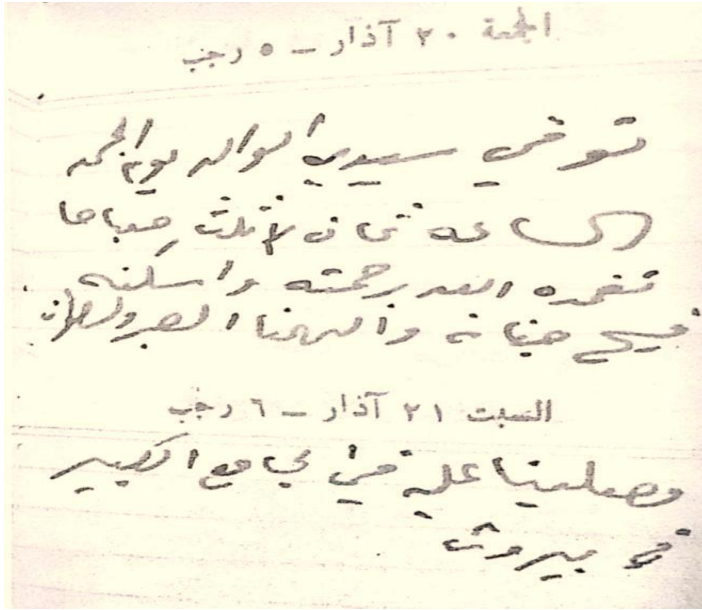 الجمعة ٢٠ آذار - ٥ رجب
توفي سيدي الوالد يوم الجمعه
الساعه ثمان و ثلث صباحا
تغمده الله رحمته واسكنه
فسيح جنانه والهمنا الصبر والسلوان
السبت ٢١ آذار - ٦ رجب
وصلينا عليه في الجامع الكبير
في بيروت